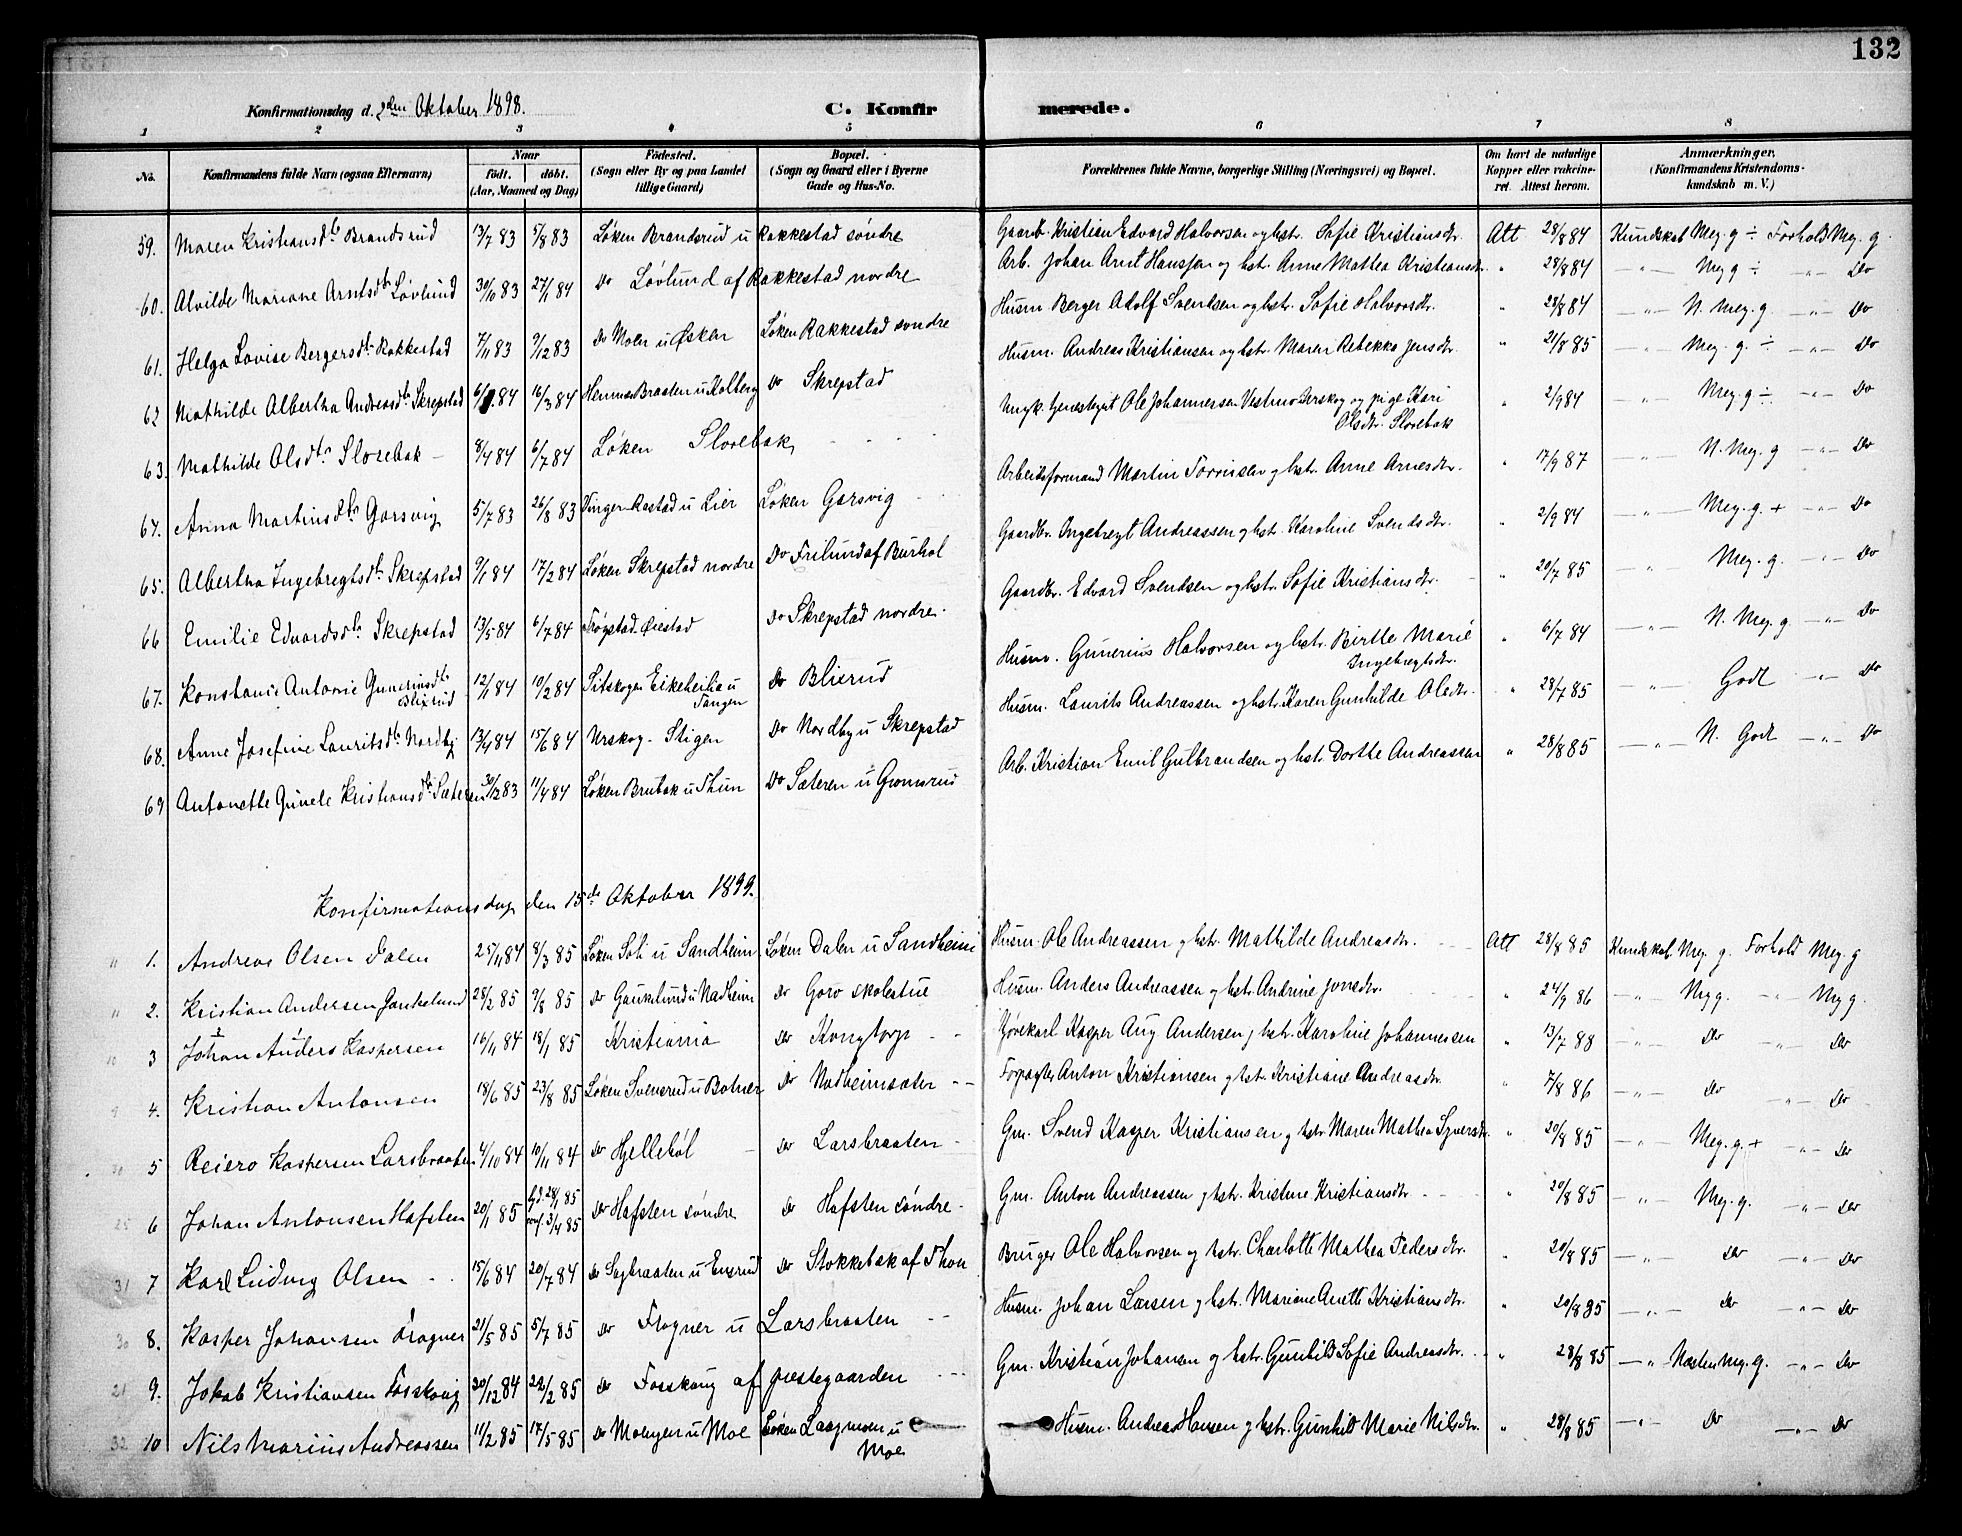 132
Konfirmationsdag d. 2den Oktober 1898.
C. Konfirmerede.
1 2 3 4 5 6 7 8
No. Konfirmandens fulde Navn (ogsaa Efternavn) Naar født. døbt. (Aar, Maaned og Dag) Fødested. (Sogn eller By og paa Landet tillige Gaard) Bopæl. (Sogn og Gaard eller i Byerne Gade og Hus-No. Forældrenes fulde Navne, borgerlige Stilling (Næringsvei) og Bopæl. Om havt de naturlige Kopper eller vakcineret. Attest herom. Anmærkninger, (Konfirmandens Kristendomskundskab m. V.)
59. Maren Kristiansdtr Brandsrud 13/7 83 5/8 83 Løken Brandsrud u Rakkestad søndre Gaardb. Kristian Edvard Halvorsen og hstr. Sofie Kristiansdtr. Att 28/8 84 Kundskab Meg. g ÷ Forhold Meg. g.
60. Alvilde Mariane Arntsdtr Løvlund 30/10 83 27/1 84 Do Løvlund af Rakkestad nordre Arb. Johan Arnt Hanssen og hst. Anne Mathea Kristiansdtr " 28/8 84 —"— Meg g ÷ —"— Do
61. Helga Lovise Bergersdtr Rakkestad 7/11 83 9/12 83 Do Moen u Øsken Løken Rakkestad søndre Husm Berger Adolf Svendsen og hstr. Sofie Halvorsdtr. " 28/8 84 —"— N. Meg. g. —"— Do
62 Mathilde Albertha Andreasdtr Skrepstad 6/1 84 16/3 84 Hemnes Braaten u Kolberg Do Skrepstad Husm. Andreas Kristiansen og hstr. Maren Rebekka Jensdtr. " 21/8 85 —"— Meg. g. ÷ —"— Do
63. Mathilde Olsdtr Slorebak — 8/4 84 6/7 84 Løken Slorebak Ungk. tjenestegut Ole Johannessen Vestmo Urskog og pige Kari Olsdtr. Slorebak " 2/9 84 —"— Meg. g ÷ —"— Do
67. Anna Martinsdtr Garsvig 5/7 83 26/8 83 Vinger Rastad u Lier Løken Garsvig Arbeidsformand Martin Torinsen og hstr. Anne Arnesdtr. " 17/9 87 —"— N. Meg. g —"— Do
65. Albertha Ingebregtsdtr Skrepstad 9/1 84 17/2 84 Løken Skrepstad nordre Do Frilund af Burhol Gaardbr. Ingebregt Andreassen og hstr. Karoline Svendsdtr. " 2/9 84 —"— Meg. g. + —"— Do
66 Emilie Edvardsdtr Skrepstad 13/5 84 6/7 84 Trøgstad Øiestad Do Skrepstad nordre. Gaardbr. Edvard Svendsen og hstr. Sofie Kristiansdtr. " 20/7 85 —"— Meg. g. —"— Do
67. Konstance Antonie Guneriusdtr Blixrud 12/1 84 10/2 84 Sitskogen Eikeheilia u Tangen Do Blixrud Husm. Gunerius Halvorsen og hstr. Birtte Marie Ingebregtsdtr. " 6/7 84 —"— N. Meg. g —"— Do
68. Anne Josefine Lauritsdtr Nordby 13/4 84 15/6 84 Urskog - Stigen Do Nordby u Skrepstad Husm. Laurits Andreassen og hstr. Karen Gunhilde Olsdtr. " 28/7 85 —"— Godt —"— Do
69 Antonette Gunele Kristiansdtr Sæteren 30/12 83 11/4 84 Løken Brubak u Thun Do Sæteren u Gromsrud Arb. Kristian Emil Gulbrandsen og hstr. Dorthe Andreassen " 28/8 85 —"— N. Godt —"— Do
Konfirmationsdag den 15de Oktober 1899.
1. Andreas Olsen Dalen 25/11 84 8/3 85 Løken Soli u Sandheim Løken Dalen u Sandheim Husm. Ole Andreassen og hstr. Mathilde Andreasdtr. Att 28/8 85 Kundskab Meg. g. Forhold Meg. g
2. Kristian Andersen Gaukelund 28/2 85 9/8 85 Do Gaukelund u Nadheim Do Goro skolestue Husm. Anders Andreassen og hstr. Andrine Jonsdtr. " 24/9 86 —"— Meg g. —"— Meg g.
3 Johan Anders Kaspersen 16/11 84 18/1 85 Kristiania Do Kongtorp Kjørekarl Kasper Aug Andersen og hstr. Karoline Johannessen " 13/7 88 —"— Do —"— Do
4. Kristian Antonsen 18/6 85 23/8 85 Løken Svensrud u Botner Do Nadheimsæter Forpagter Anton Kristiansen og hstr. Kristiane Andreasdtr. " 7/8 86 —"— Do —"— Do
5 Reiero Kaspersen Larsbraaten 4/10 84 10/11 84 Do Hjellebøl Do Larsbraaten Gm. Svend Kasper Kristiansen og hstr. Maren Mathea Syversdtr. " 20/8 85 —"— Meg. g. + —"— Do
6 Johan Antonsen Hafsten 20/1 85 hjd. 28/1 85 conf. 3/4 85 Do Hafsten søndre Do Hafsten søndre Gm. Anton Andreassen og hstr. Kristine Kristiansdtr " 20/8 85 —"— Meg. g. —"— Do
31 7 Karl Ludvig Olsen 15/6 84 20/7 84 Do Sagbraaten u Ensrud Do Stokkebak af Thon Bruger Ole Halvorsen og hstr. Charlotte Mathea Pedersdtr. " 20/8 85 —"— Do —"— Do
30 8. Kasper Johansen Frogner 21/5 85 5/7 85 Do Frogner u Larsbraaten Husm. Johan Larsen og hstr. Mariane Anette Kristiansdtr. " 20/8 85 —"— Do —"— Do
21 9. Jakob Kristiansen Fosskaug 20/12 84 22/2 85 Do Fosskaug af prestegaarden Gm. Kristian Johansen og hstr. Gunhild Sofie Andreasdtr. " 28/8 85 —"— Næsten Meg. g. —"— Do
32 10 Nils Marius Andreassen 11/2 85 17/5 85 Do Moengen u Moe Løken Laagmoen u Moe Husm. Andreas Hansen og hstr. Gunhild Marie Nilsdtr. " 28/8 85 —"— Do —"— Do